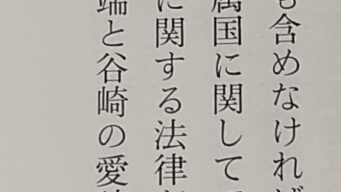 も含めなければ
属国に関して
に関する法律
端と谷崎の愛